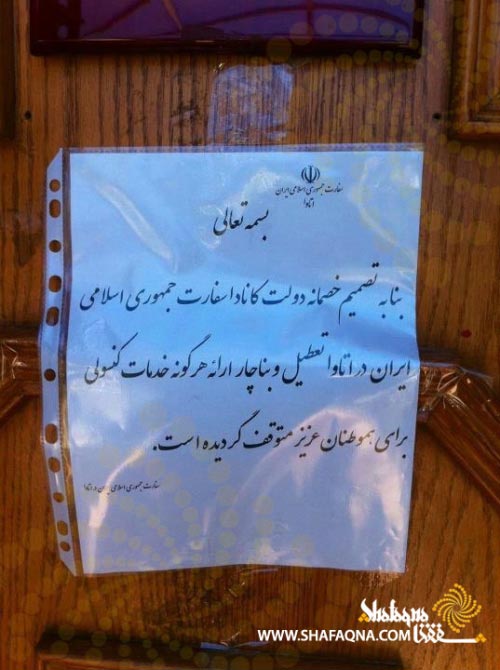 سفارت جمهوری اسلامی ایران
اتاوا
بسمه تعالی
بنا به تصمیم خصمانه دولت کانادا سفارت جمهوری اسلامی
ایران در اتاوا تعطیل و بناچار ارائه هرگونه خدمات کنسولی
برای هموطنان عزیز متوقف گردیده است.
سفارت جمهوری اسلامی ایران در اتاوا
Shafaqna شفقنا
WWW.SHAFAQNA.COM